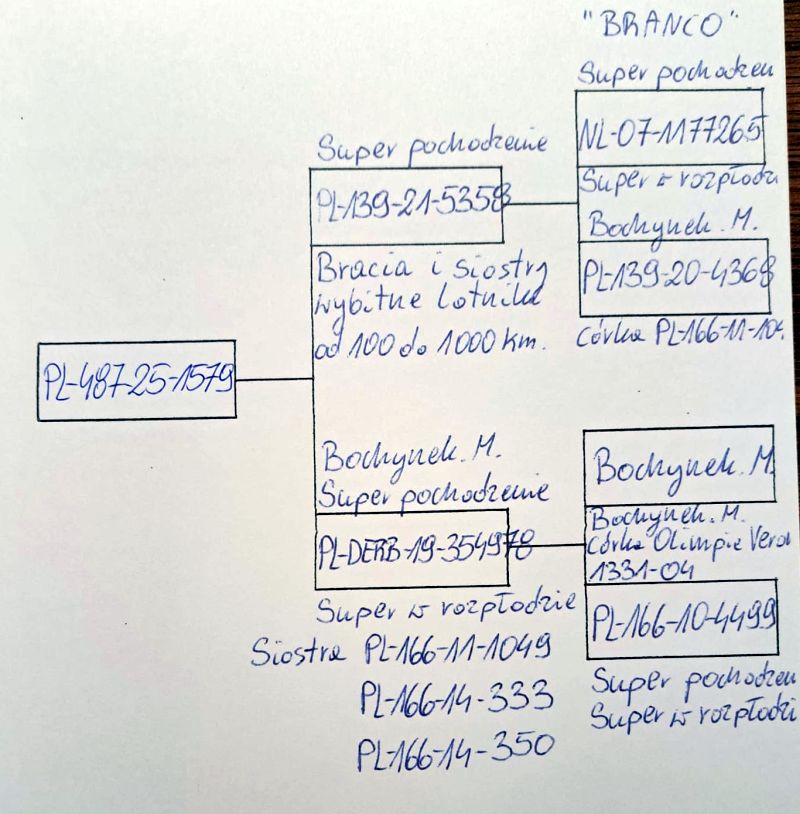 "BRANCO"
Super pochodzen
NL-07-1177265
Super w rozpłodzi
Bochynek. M.
PL-139-20-4368
córka PL-166-11-104
Super pochodzenie
PL-139-21-5358
Bracia i siostry
wybitne lotnika
od 100 do 1000 km.
PL-487-25-1579
Bochynek. M.
Super pochodzenie
PL-DERB-19-354978
Super w rozpłodzie
Siostra PL-166-11-1049
PL-166-14-333
PL-166-14-350
Bochynek. M
Bochynek. M.
córka Olimpia Veron
1331-04
PL-166-10-4499
Super pochodzen
Super w rozpłodzi